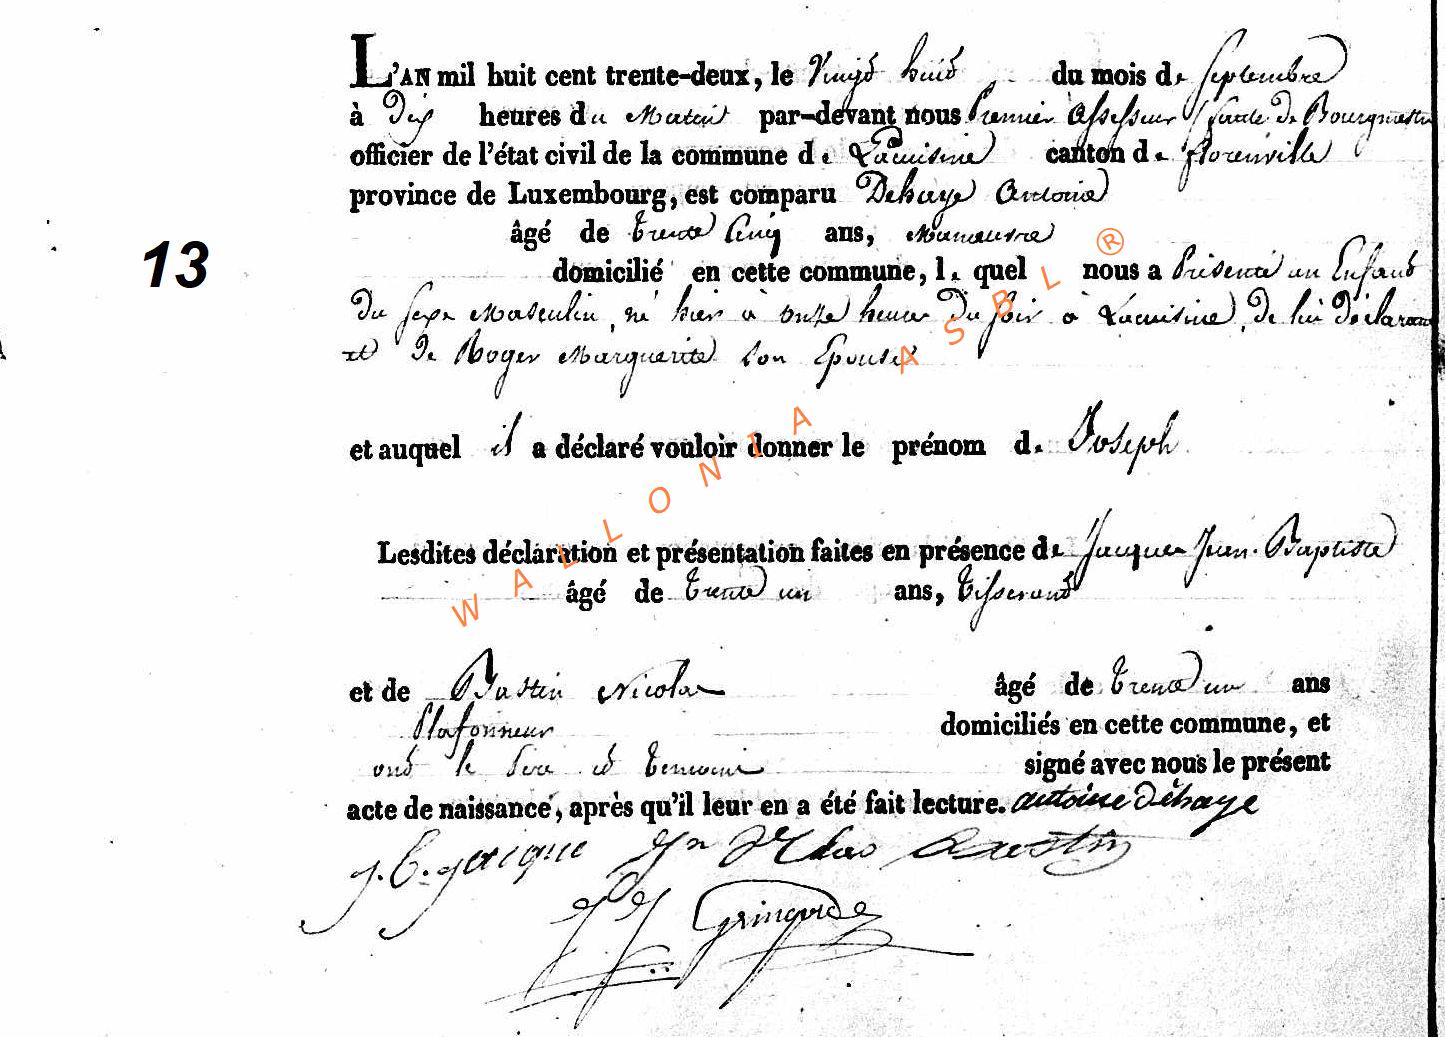 L'AN mil huit cent trente-deux, le Vingt huit du mois de Septembre
à Dix heures du Matin par-devant nous Premier Assesseur faute de Bourgmestre
officier de l'état civil de la commune de Lacuisine canton de florenville
province de Luxembourg, est comparu Dehaye Antoine
âgé de trente Cinq ans, Manœuvre
13
domicilié en cette commune, lequel nous a Présenté un Enfant
du sexe Masculin, né hier à onze heures du soir à Lacuisine, de lui déclarant
et de Roger Marguerite son Epouse
et auquel il a déclaré vouloir donner le prénom de Joseph
Lesdites déclaration et présentation faites en présence de Jacque Jean-Baptiste
âgé de trente un ans, tisserand
et de Bastin Nicolas âgé de trente un ans
Plafonneur domiciliés en cette commune, et
ont le Père et témoins signé avec nous le présent
acte de naissance, après qu'il leur en a été fait lecture. antoine Déhaye
J. B. Jacque Bastin
J J Gringard
WALLONIA ASBL ®